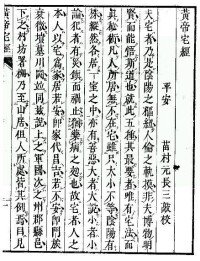 黃帝宅經
平安 苗村元長三敲校
夫宅者乃是陰陽之樞紐人倫之軌模非夫博物明
賢而能悟斯道也就此五種其最要者唯有宅法而
真秘術凡人所居無不在宅雖只大小不等陰陽有
殊縱然客居一室之中亦有善惡大者大說小者小
論犯者有災鎮而禍止猶藥病之效也故宅者人之
本人以宅為家居若安即家代昌吉若不安即門族
衰微墳墓川岡並同茲說上之軍國次及州郡縣邑
下之村坊署柵乃至山居但人所處皆其例焉目見
黃帝宅經